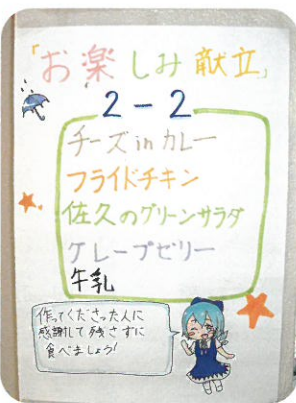 「お楽しみ献立」
2-2
チーズinカレー
フライドチキン
佐久のグリーンサラダ
クレープゼリー
牛乳
作ってくださった人に
感謝して残さずに
食べましょう!